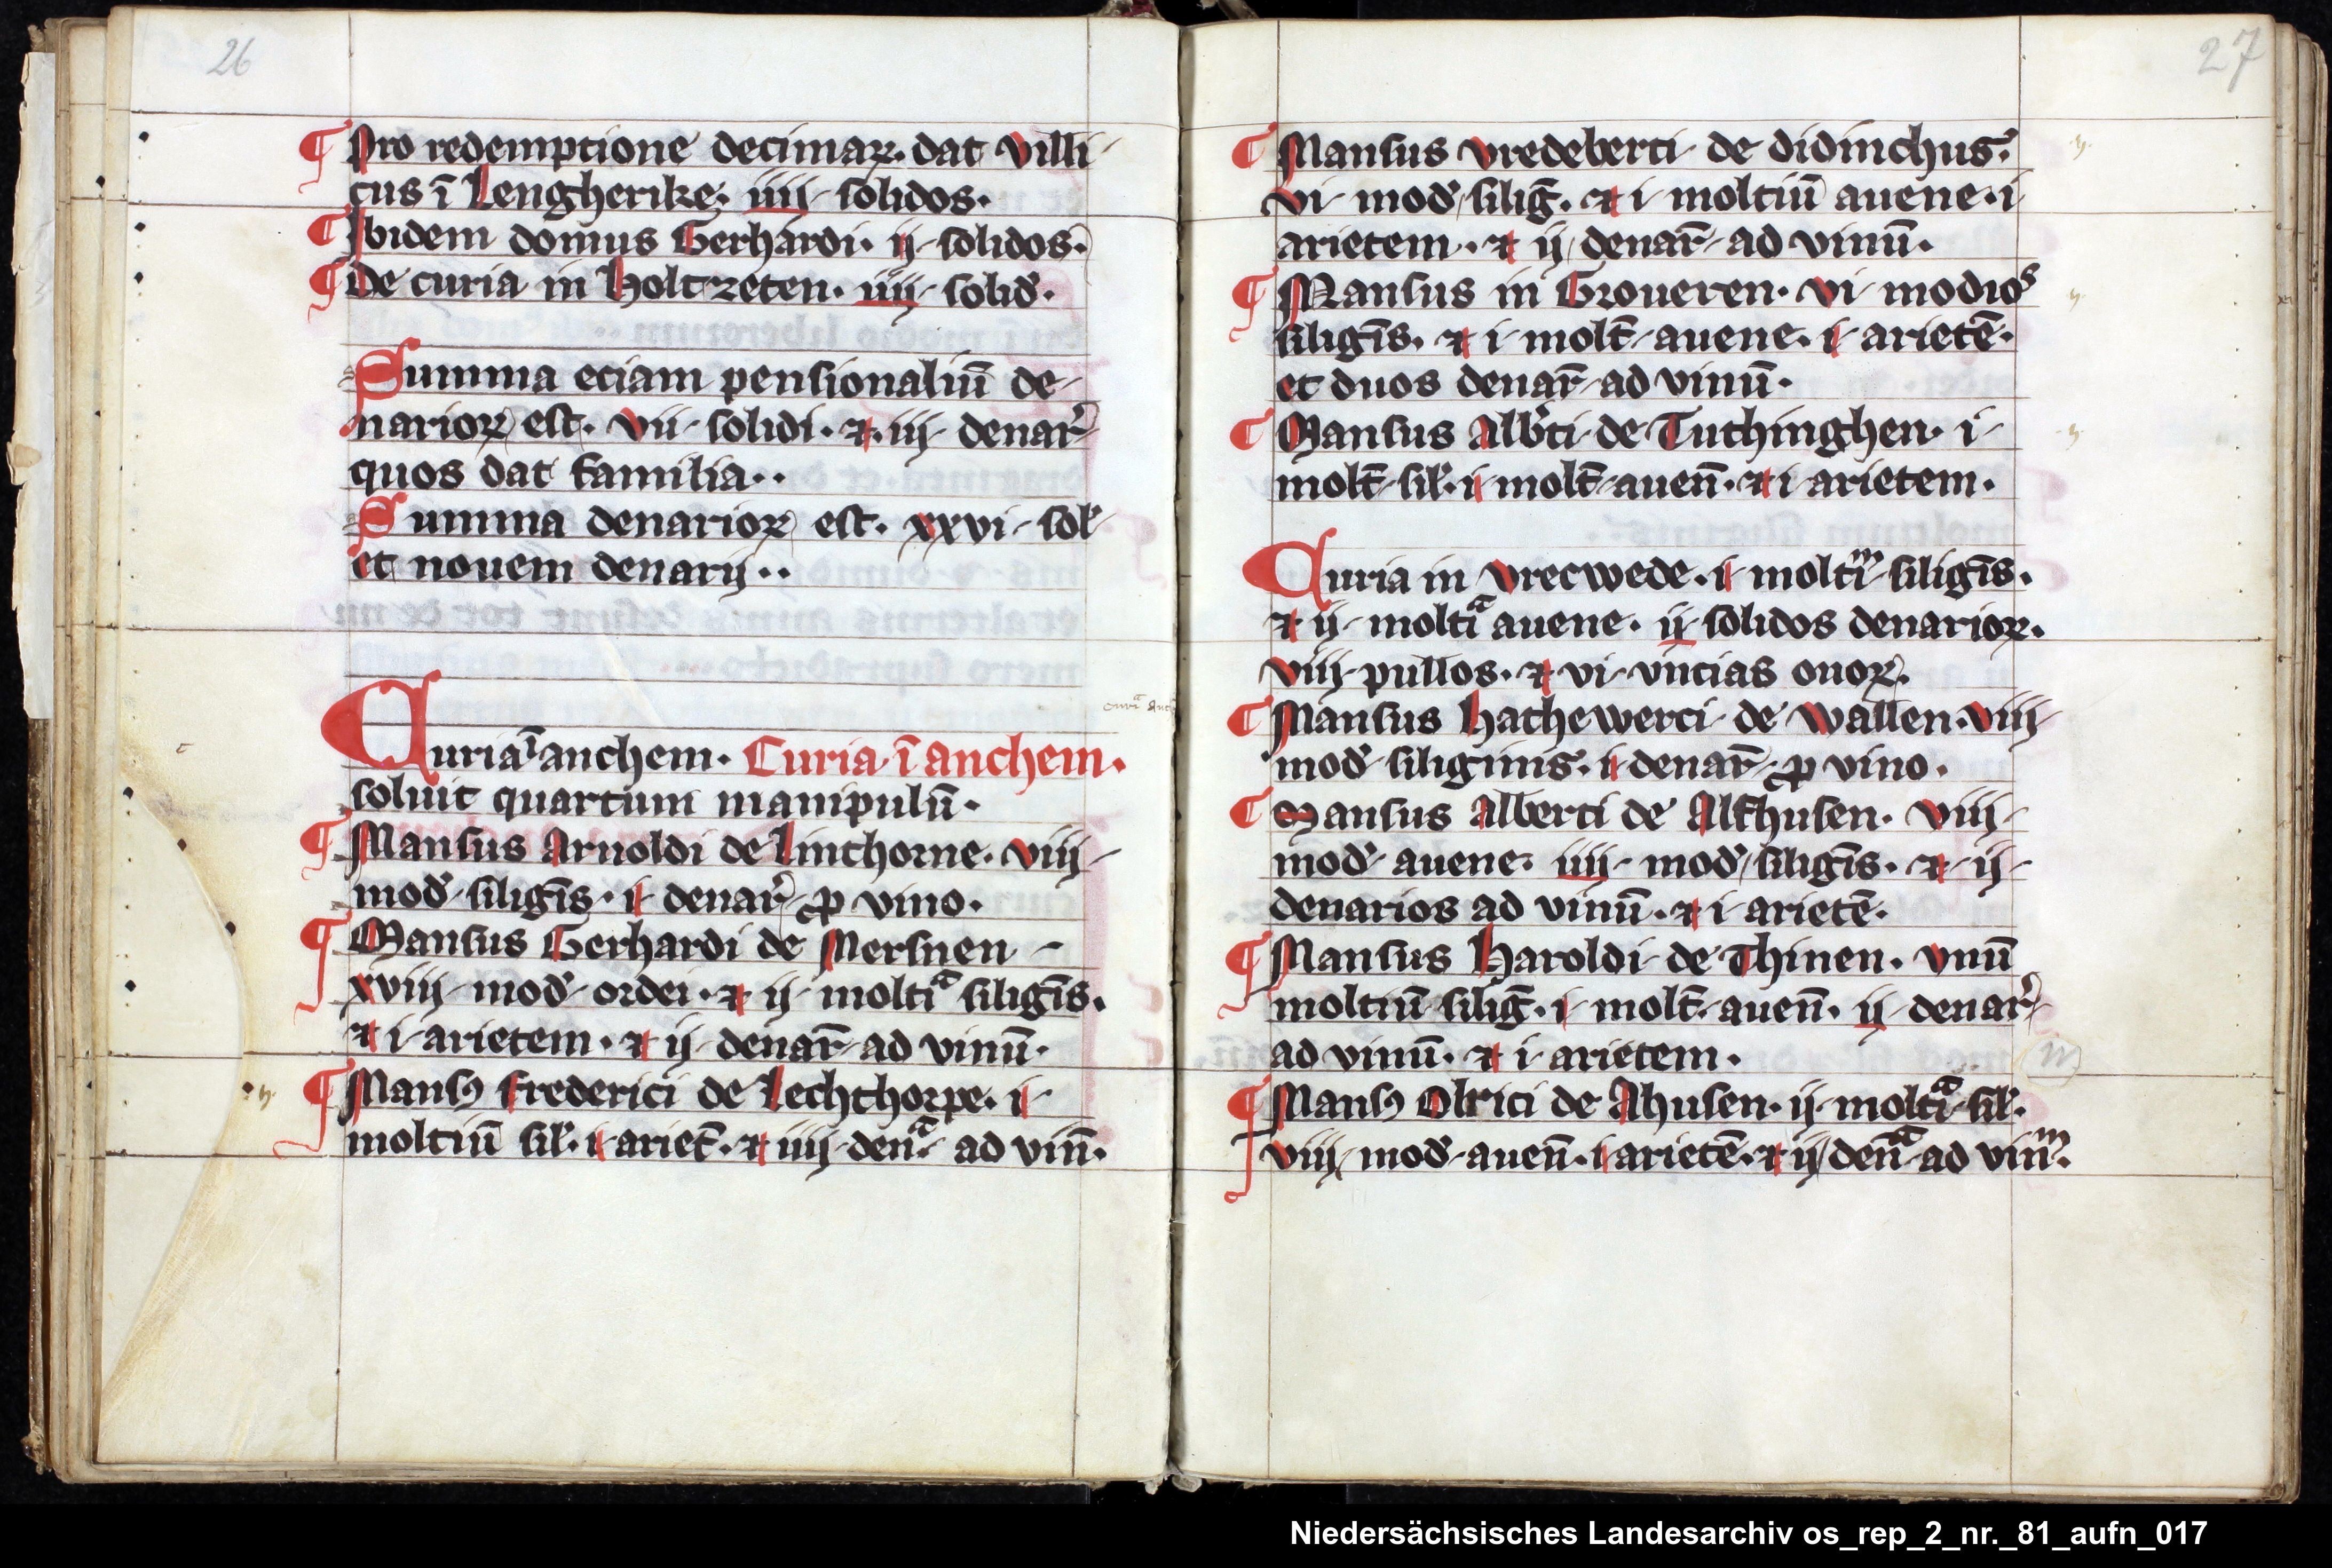 26
¶ Pro redemptione decimaꝝ. dat villi-
cus ī Lengherike. iiij solidos.
¶ Ibidem domus Gerhardi. ij solidos.
¶ De curia in Holtzeten. iiij solid̉.
Summa eciam pensionaliū de-
narioꝝ est. vii solidi. ⁊ iij denar̉
quos dat familia..
Summa denarioꝝ est. xxvi sol̉
et nouem denarij..
Curia ī anchem. Curia ī anchem.
soluit quartum manipulū.
¶ Mansus Arnoldi de Linthorne. viij
mod̉ siligīs. i denar̉ ꝓ vino.
¶ Mansus Gerhardi de Mersnen
xviij mod̉ ordei. ⁊ ij moltiᵃ siligīs.
⁊ i arietem. ⁊ ij denar̄ ad vinū.
¶ Mansꝰ frederici de Lechthorpe. i
moltiū sil̉. i ariet̄. ⁊ iiij denᵃ. ad vin̄.
27
¶ Mansus vredeberti de didinchus̉.
vi mod̉ siliḡ. ⁊ i moltiū auene. i
arietem. ⁊ ij denar̄ ad vinū.
¶ Mansus in Groueren. vi modioˢ
siligīs. ⁊ i molt̄ auene. i arietē.
et duos denar̄ ad vinū.
¶ Mansus Alb̉ti de Tuthinghen. i
molt̄ sil̉. i molt̄ auen̄. ⁊ i arietem.
Curia in vrecwede. i moltiᵐ siligīs.
⁊ ij moltiᵃ auene. ij solidos denarioꝝ.
viij pullos. ⁊ vi vncias ouoꝝ.
¶ Mansus Hathewerci de wallen. viij
mod̉ siliginis. i denar̄ ꝓ vino.
¶ Mansus Alberti de Althusen. viij
mod̉ auene. iiij mod̉ siligīs. ⁊ ij
denarios ad vinū. ⁊ i arietē.
¶ Mansus Haroldi de Thinen. vnū
moltiū siliḡ. i molt̄ auen̄. ij denar̉
ad vinū. ⁊ i arietem.
¶ Mansꝰ Olrici de Ahusen. ij moltiᵃ sil̉.
viij mod̉ auen̄. i arietē. ⁊ ij den̄ᵃ ad vinᵐ.
Niedersächsisches Landesarchiv os_rep_2_nr._81_aufn_017